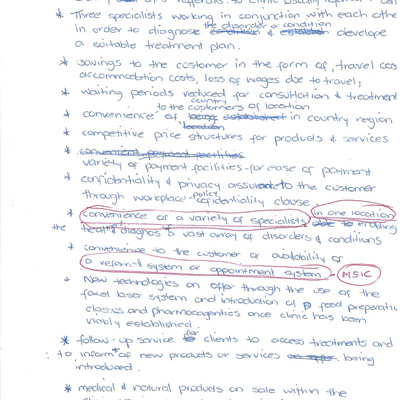 referrals to clinic usually
* Three specialists working in conjunction with each othe
the disorder or condition
in order to diagnose condition & establish develope
a suitable treatment plan.
* savings to the customer in the form of, travel cos
accommodation costs, loss of wages due to travel;
* waiting periods reduced for consultation & treatment
to the customers of location
country
* convenience of being established in country region
location
* competitive price structures for products & services
* convenient payment facilities
variety of payment facilities for ease of payment
* confidentiality & privacy assured to the customer
through workplace policy confidentiality clause
* convenience of a variety of specialists in one location
due to enabling
the diagnosis vast array of disorders & conditions
* convenience to the customer of availability of
a referral system or appointment system - MSIC
* New technologies on offer through the use of the
foxel laser system and introduction of food preparatic
classes and pharmacogentics once clinic has been
viably established.
* follow-up service for clients to access treatments and
: to inform of new products or services being
introduced.
* medical & natural products on sale within the